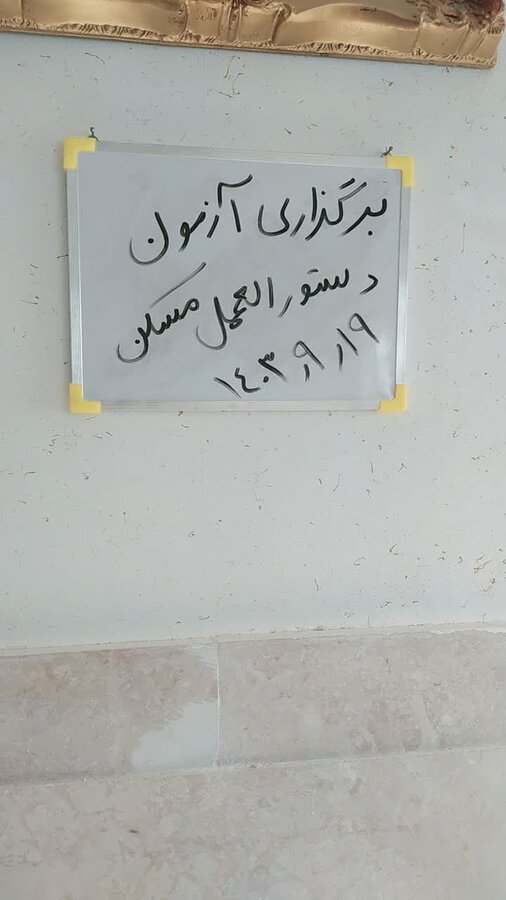 برگذاری آزمون
دستورالعمل مسکن
۱۴۰۳٫۹٫۱۹